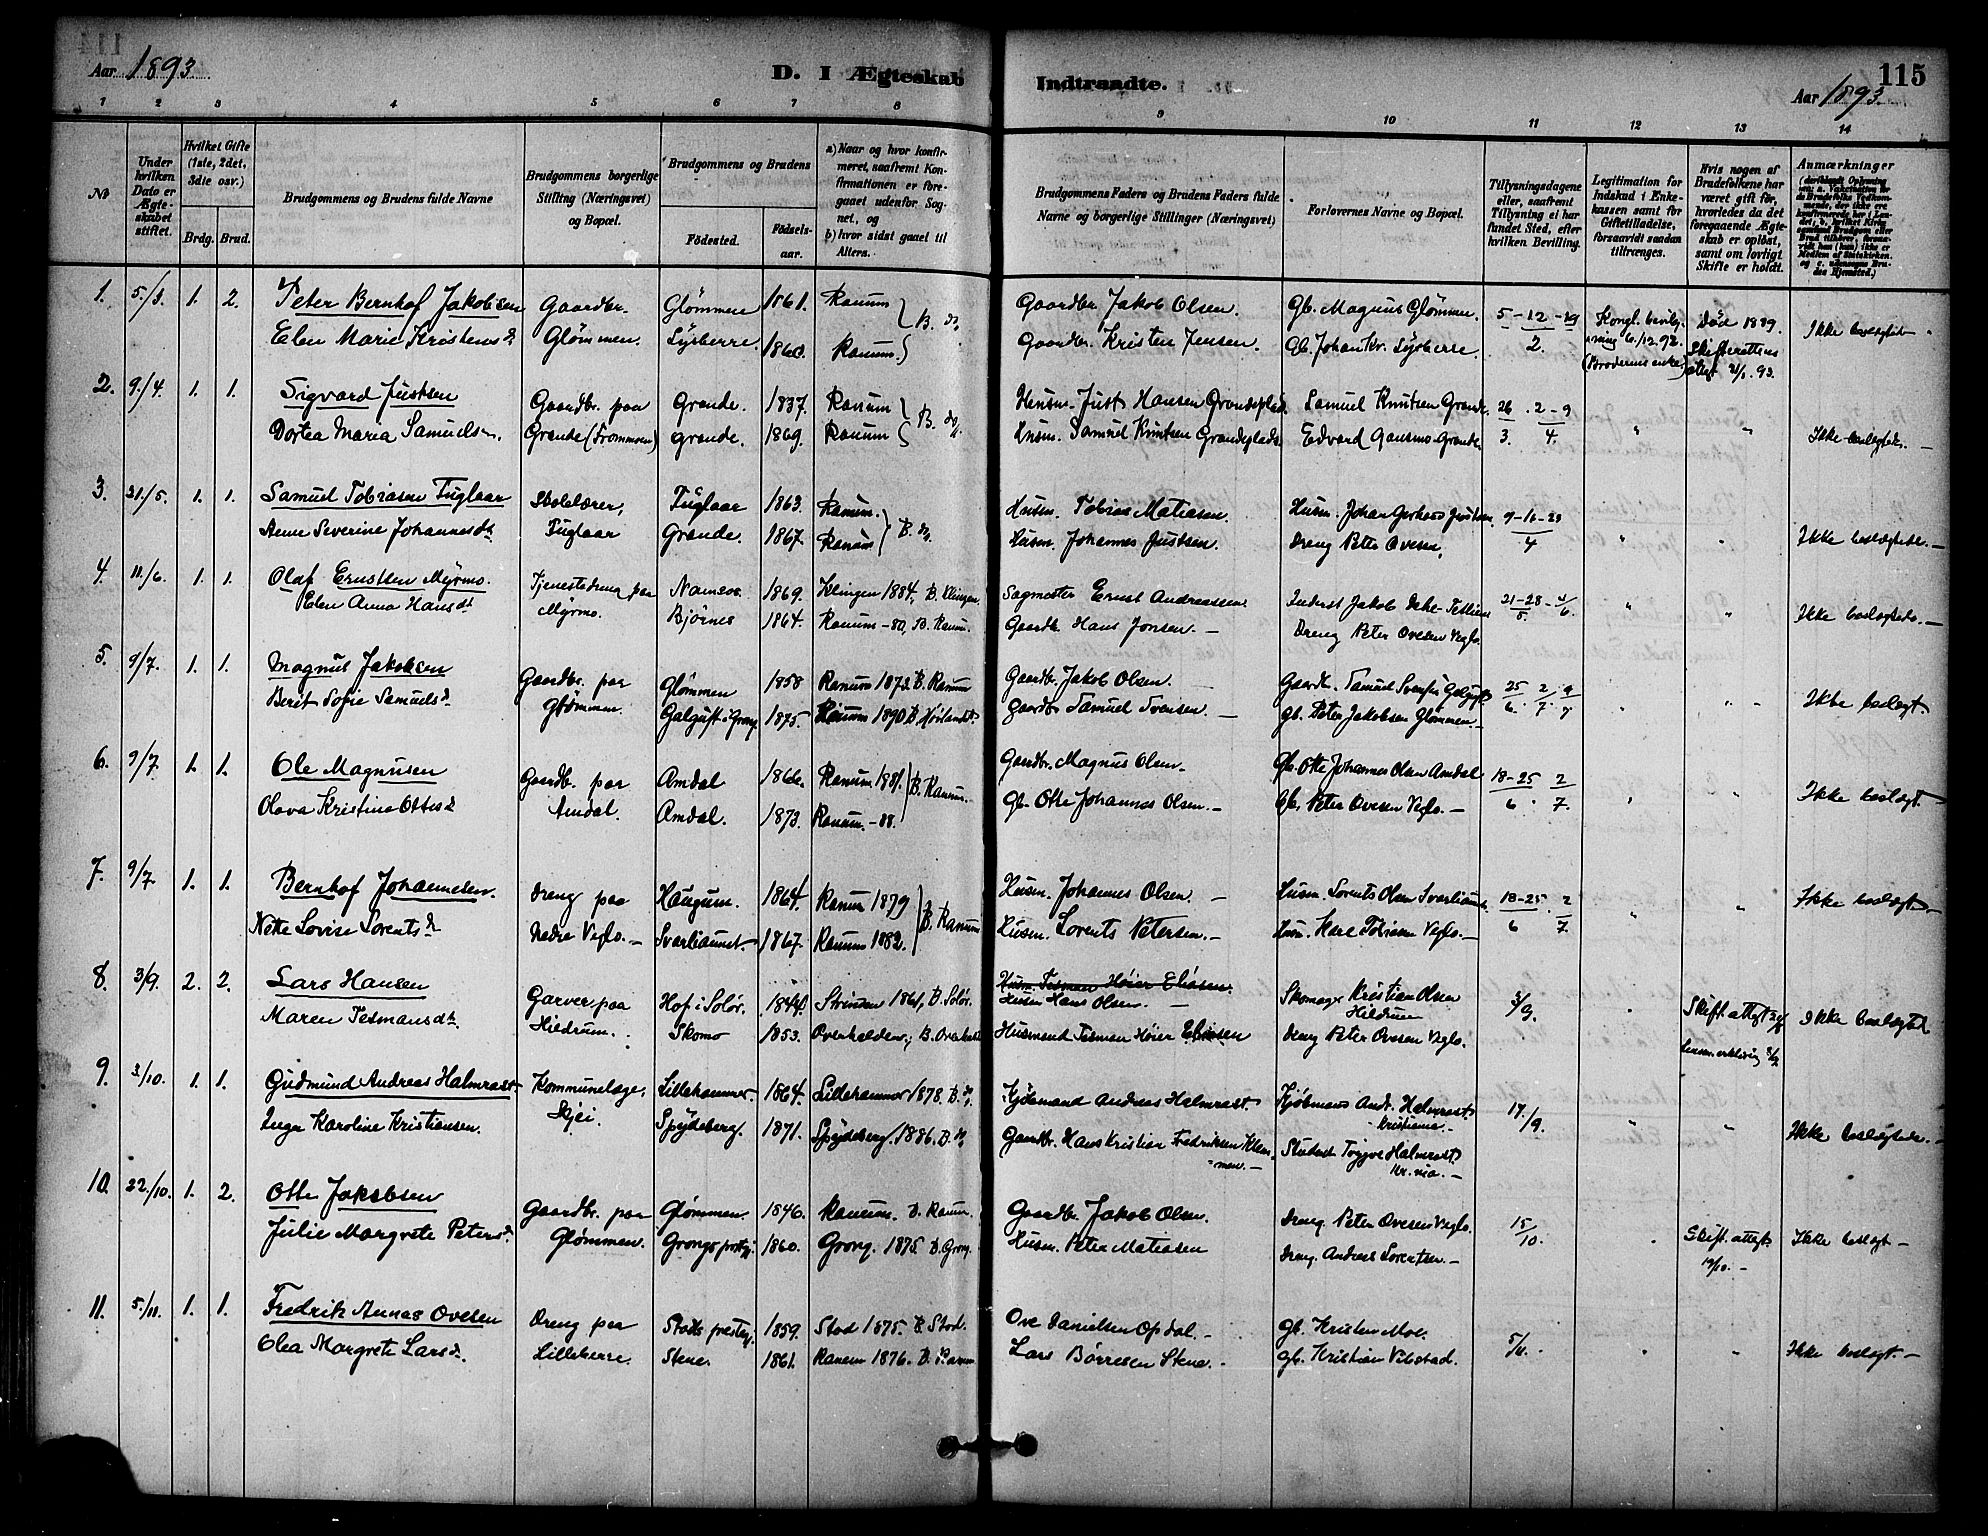 Aar 1893.
D. I Ægteskab Indtraadte.
115
Aar 1893.
1 2 3 4 5 6 7 8 9 10 11 12 13 14
No
Under hvilken Dato er Ægteskabet stiftet.
Hvilket Gifte (1ste, 2det, 3die osv.)
Brdg. Brud.
Brudgommens og Brudens fulde Navne
Brudgommens borgerlige Stilling (Næringsvei) og Bopæl.
Brudgommens og Brudens
Fødested.
Fødselsaar.
a) Naar og hvor konfirmeret, saafremt Konfirmationen er foregaaet udenfor Sognet, og b) hvor sidst gaaet til Alters.
Brudgommens Faders og Brudens Faders fulde Navne og borgerlige Stillinger (Næringsvei)
Forlovernes Navne og Bopæl.
Tillysningsdagene eller, saafremt Tillysning ei har fundet Sted, efter hvilken Bevilling.
Legitimation for Indskud i Enkekassen samt for Giftetilladelse, forsaavidt saadan tiltrænges.
Hvis nogen af Brudefolkene har været gift før, hvorledes da det foregaaende Ægteskab er opløst, samt om lovligt Skifte er holdt.
Anmærkninger
1. 5/3. 1. 2. Peter Bernhof Jakobsen Gaardbr. Glömmen 1861. Ranum Gaardbr Jakob Olsen. Gb. Magnus Glömmen. 5-12-19 Kongl. bevilg- Död 1889. Ikke beslægtet
Elen Marie Kristensd. Glömmen. Lysberre. Ranum. Gaardbr. Kristen Jensen. Gb. Johan Kr. Lysberre. 2. ning 6./12.92. (Broderens enke) Skifterettens
2. 9/4. 1. 1. Sigvard Justsen Gaardbr. paa Grande. 1837. Ranum B. do. Husm. Just Hansen Grandeplads. Samuel Knutsen Grande. 26 . 2-9
Dortea Maria Samuelsen. Grande (Frommoen) Grande. 1869. Ranum Husm. Samuel Knutsen Grandeplads. Edvard Gansmo-Grande 3. 4. " " Ikke beslægtede. —
3. 21/5. 1. 1. Samuel Tobiasen Fuglaar Skolelærer, Fuglaar 1863. Ranum. Husm. Tobias Matiasen. 9-16-23
Anne Severine Johannesdt. Fuglaar Grande. 1867. Ranum Husm. Johannes Justsen. Dreng Peter Ovesen. 4 " " Ikke beslægtede. —
4. 11/6. 1. 1. Olaf Ernstsen Myrmo. Tjenestedreng paa Namsos. 1869. Klingen 1884, B. Klingen. Sagmester Ernst Andreassen Inderst Jakob 21-28-4/6
Elen Anna Hansdt. Myrmo. Bjørnes 1864. Ranum -80, B. Ranum. Gaardb. Hans Jonsen. — Dreng Peter Ovesen Veglo. 5. " " Ikke beslægtede. —
5. 9/7. 1. 1. Magnus Jakobsen Gaardbr. paa Glømmen 1858 Ranum 1873. B. Ranum Gaardbr. Jakob Olsen. Gaardb. Samuel Svensen Galguft 25 2 9
Berit Sofie Samuelsd. Gløm̄men. Galguft i Grong 1875. Ranum 1890 B. Høilandet. Gaardbr Samuel Svensen. — Gb. Peter Jakobsen Glømmen. 6. 7. 7 " " Ikke beslægt.
6. 9/7. 1. 1. Ole Magnusen Gaardb. paa Amdal 1866. Ranum 1881. B. Ranum. Gaardbr. Magnus Olsen. Gb. Otte Johannes Olsen Amdal 18-25 2
Olava Kristina Ottesd. Amdal. Amdal. 1873. Ranum. -88. Gb. Otte Johannes Olsen. — Gb. Peter Ovesen Veglo. — 6. 7. Ikke beslægt.
7. 9/7. 1. 1. Bernhof Johannesen. Dreng paa Haugum. 1864. Ranum 1879 B. Ranum Husm. Johannes Olsen. — Husm. Lorents Olsen Svarliaunet. 18-25. 2 Ikke beslægt. —
Nette Lovise Lorentsd. Nedre Veglo. — Svarliaunet 1867. Ranum 1882. Husm. Lorents Petersen. — Husm. Tobiasen Veglo. — 6 7. " "
8. 3/9. 2. 2. Lars Hansen Garver paa Hof i Solør. 1844. Strinden 1861, B. Solør. Husm. Tesman Höier Eliasen. Skomager Kristian Olsen
Husm Hans Olsen. — Hildrum 3/9. Skift. attgt
Maren Tesmansdt. Hildrum. Skomo 1853. Overhalden, B. Overhalden Husmand Tesman Höier Eliasen Dreng Peter Ovesen Veglo. Ikke beslægtet
9. 3/10. 1. 1. Gudmund Andreas Halmrast Kommunelæge, Lillehammer. 1864. Lillehammer 1878. Andreas Halmrast. Kjøbmand Andr. Halmrast Kristiania. 17/9.
Inga Karoline Kristiansen. Skjei. Spydeberg. 1871. Spydeberg. 1886. Gaardbr. Hans Kristian Fredriksen Student Trygve Halmrast. Kr.nia. — " " Ikke beslægtede. —
10. 22/10. 1. 2. Otte Jakobsen Gaardbr. paa Glømmen. 1846. Ranum. B. Ranum Gaardbr. Jakob Olsen. Dreng Peter Ovesen Veglo. 15/10. Skift. attgt. Ikke beslægt —
Julie Margrete Petersd. Glømmen. Grongs prstgj. 1860. Grong. 1875 B. Grong. Husm. Peter Matiasen Dreng. Andreas Lorentsen —
11. 5/11. 1. 1. Fredrik Annas Ovesen Dreng paa Stods prestgj. 1859. Stod 1875. B. Stod. Ove Danielsen Opdal. — Gb. Kristen Moe. 5/11.
Olea Margrete Larsd. Lilleberre. Stene. 1861. Ranem 1876. B. Ranem. Lars Börresen Stene. — Gb. Kristian Vibstad. " " Ikke beslægt. —